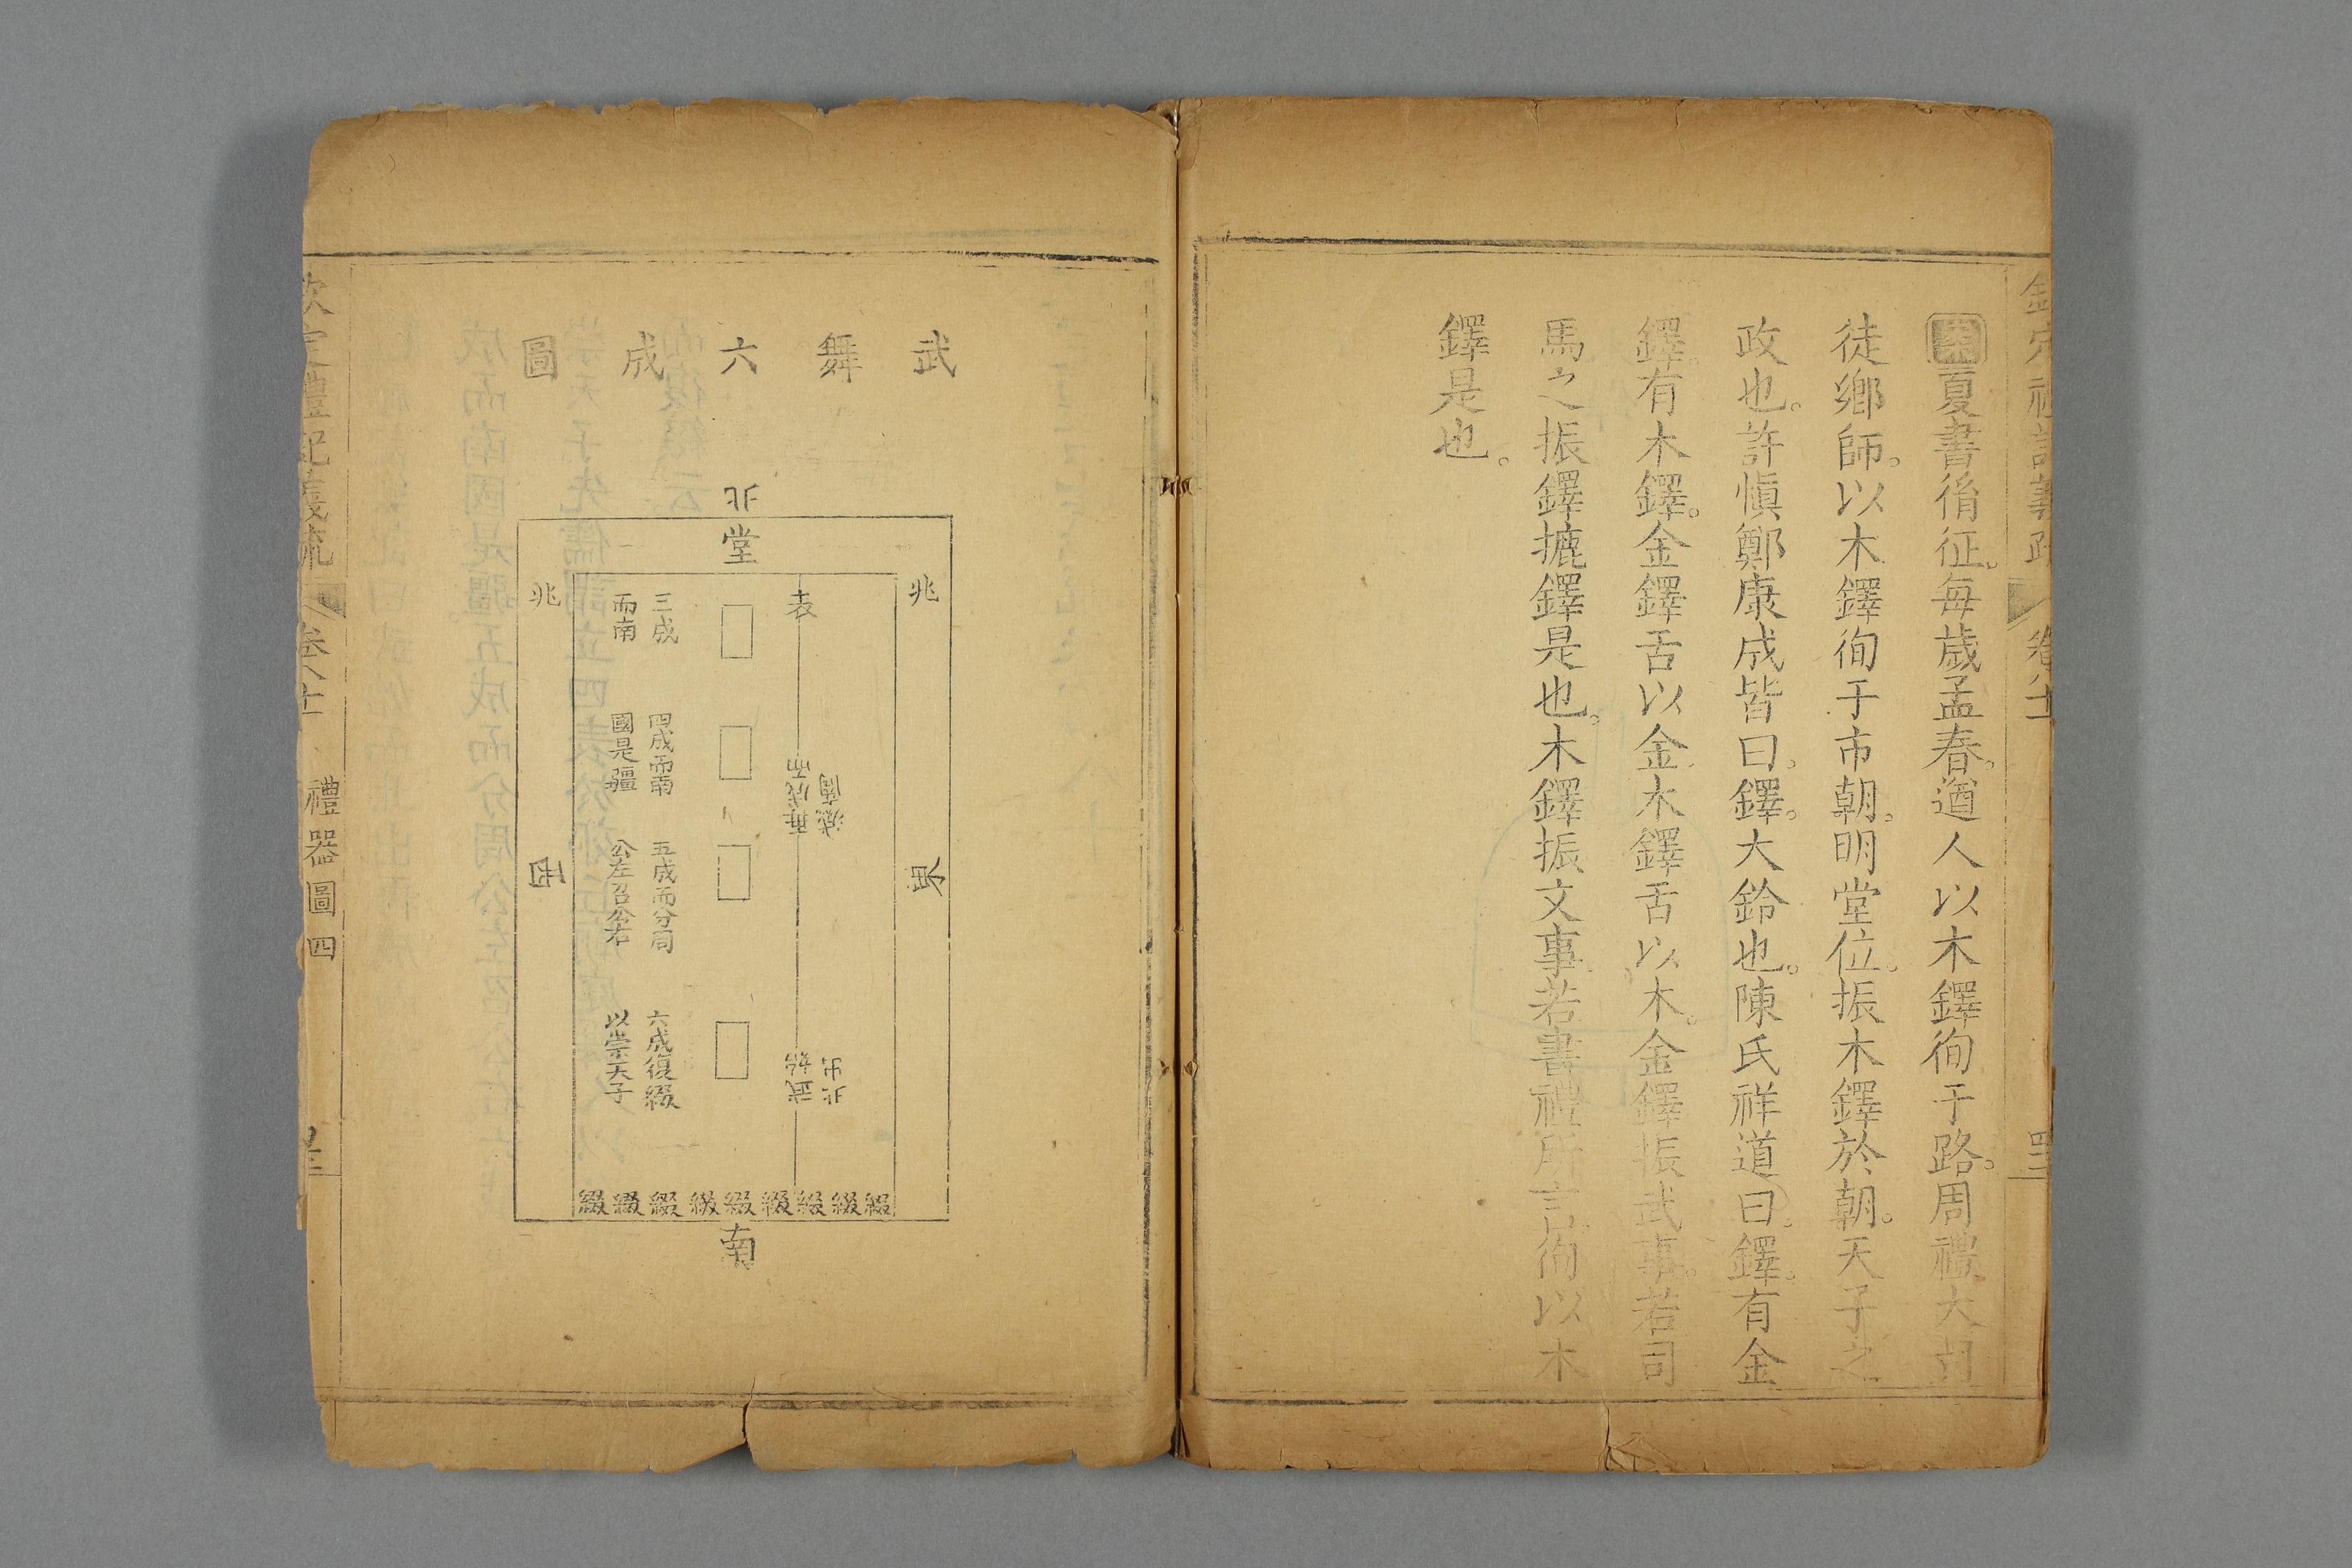 欽定禮記義疏 卷八十一
案夏書胤征每歲孟春遒人以木鐸徇于路周禮大司
徒鄉師以木鐸徇于市朝明堂位振木鐸於朝天子之
政也許愼鄭康成皆曰鐸大鈴也陳氏祥道曰鐸有金
鐸有木鐸金鐸舌以金木鐸舌以木金鐸振武事若司
馬之振鐸摝鐸是也木鐸振文事若書禮所言徇以木
鐸是也
武舞六成圖
北
堂
兆
兆
表
東
西
武始
北出
再成而
滅商
三成
而南
四成而南
國是疆
五成而分周
公左召公右
六成復綴
以崇天子
綴綴綴綴綴綴綴綴綴
南
欽定禮記義疏 卷八十一 禮器圖四